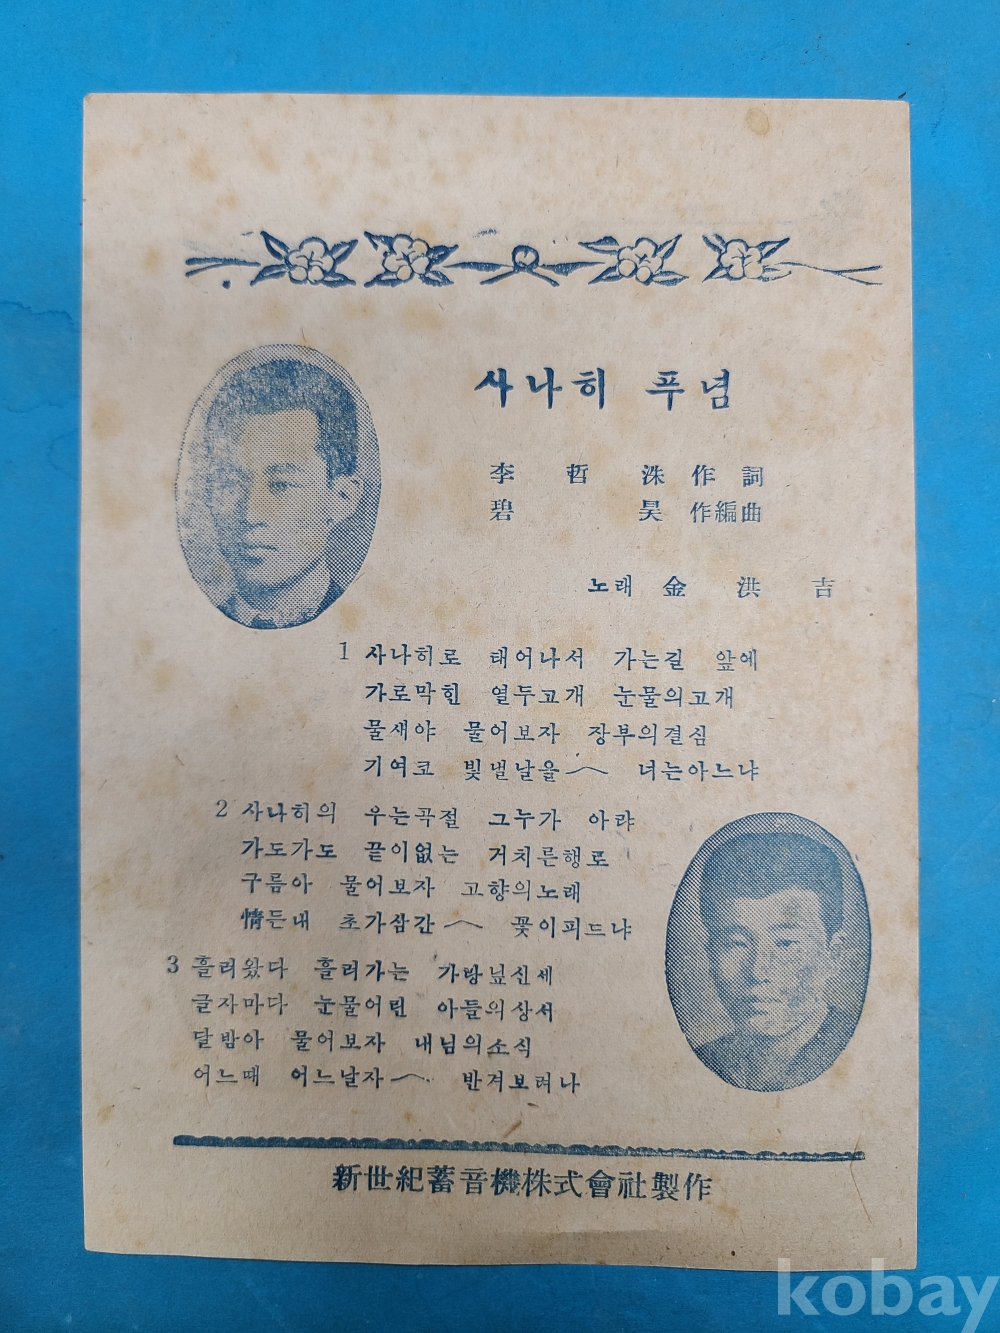 사나히 푸념
李哲洙 作詞
碧昊 作編曲
노래 金洪吉
1 사나히로 태어나서 가는길 앞예
가로막힌 열두고개 눈물의고개
물새야 물어보자 장부의결심
기여코 빛낼날을︿ 너는아느냐
2 사나히의 우는곡절 그누가 아랴
가도가도 끝이없는 거치른행로
구름아 물어보자 고향의노래
情든내 초가삼간︿ 꽃이피드냐
3 흘러왔다 흘러가는 가랑닢신세
글자마다 눈물어린 아들의상서
달밤아 물어보자 내님의소식
어느때 어느날자︿ 반겨보려나
新世紀蓄音機株式會社製作
kobay